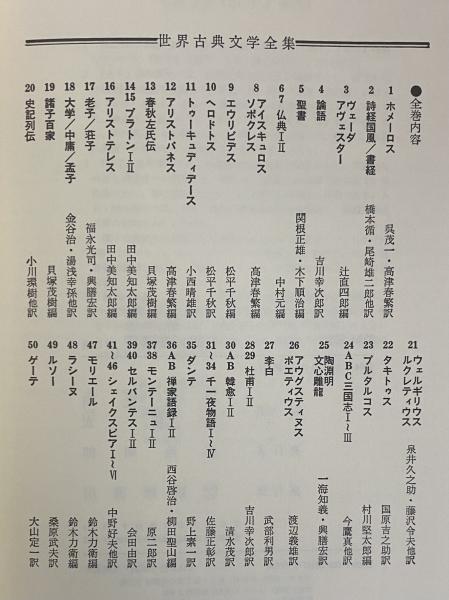 世界古典文学全集
●全巻内容
1 ホメーロス 呉茂一・高津春繁訳
2 詩経国風／書経 橋本循・尾崎雄二郎他訳
3 ヴェーダ アヴェスター 辻直四郎編
4 論語 吉川幸次郎訳
5 聖書 関根正雄・木下順治編
6 7 仏典Ⅰ Ⅱ 中村元編
8 アイスキュロス ソポクレス 高津春繁編
9 エウリピデス 松平千秋編
10 ヘロドトス 松平千秋訳
11 トゥーキュディデース 小西晴雄訳
12 アリストパネス 高津春繁編
13 春秋左氏伝 貝塚茂樹編
14 15 プラトンⅠ Ⅱ 田中美知太郎編
16 アリストテレス 田中美知太郎編
17 老子／荘子 福永光司・興膳宏訳
18 大学／中庸／孟子 金谷治・湯浅幸孫他訳
19 諸子百家 貝塚茂樹編
20 史記列伝 小川環樹他訳
21 ウェルギリウス ルクレティウス 泉井久之助・藤沢令夫他訳
22 タキトゥス 国原吉之助訳
23 プルタルコス 村川堅太郎編
24 ABC三国志Ⅰ～Ⅲ 今鷹真他訳
25 陶淵明 文心雕龍 一海知義・興膳宏訳
26 アウグスティヌス ボエティウス 渡辺義雄訳
27 李白 武部利男訳
28 29 杜甫Ⅰ Ⅱ 吉川幸次郎訳
30 AB 韓愈Ⅰ Ⅱ 清水茂訳
31～34 千一夜物語Ⅰ～Ⅳ 佐藤正彰訳
35 ダンテ 野上素一訳
36 AB 禅家語録Ⅰ Ⅱ 西谷啓治・柳田聖山編
37 38 モンテーニュⅠ Ⅱ 原二郎訳
39 40 セルバンテスⅠ Ⅱ 会田由訳
41～46 シェイクスピアⅠ～Ⅵ 中野好夫他訳
47 モリエール 鈴木力衛編
48 ラシーヌ 鈴木力衛編
49 ルソー 桑原武夫訳
50 ゲーテ 大山定一訳